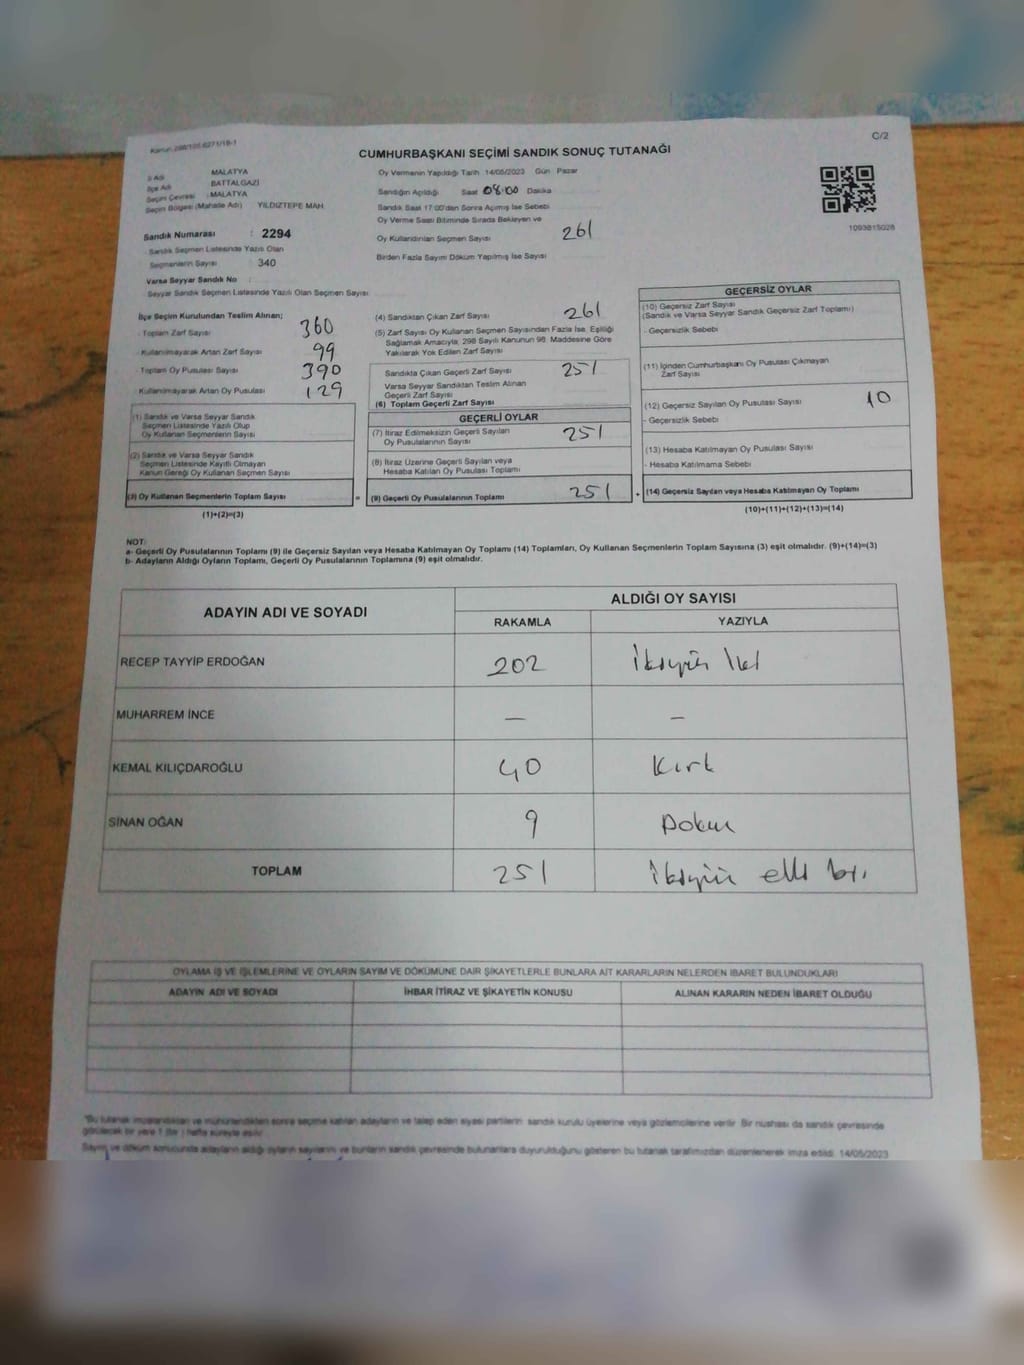 C/2
CUMHURBAŞKANI SEÇİMİ SANDIK SONUÇ TUTANAĞI
İl Adı MALATYA
İlçe Adı BATTALGAZİ
Seçim Çevresi : MALATYA
Seçim Bölgesi (Mahalle Adı) YILDIZTEPE MAH.
Oy Vermenin Yapıldığı Tarih 14/05/2023 Gün Pazar
Sandığın Açıldığı Saat 08:00 Dakika
Sandık Saat 17:00'den Sonra Açılmış İse Sebebi
Oy Verme Saati Bitiminde Sırada Bekleyen ve
Oy Kullandırılan Seçmen Sayısı 261
Birden Fazla Sayım Döküm Yapılmış İse Sayısı
1093815028
Sandık Numarası : 2294
Sandık Seçmen Listesinde Yazılı Olan
Seçmenlerin Sayısı 340
Varsa Seyyar Sandık No :
Seyyar Sandık Seçmen Listesinde Yazılı Olan Seçmen Sayısı
İlçe Seçim Kurulundan Teslim Alınan;
- Toplam Zarf Sayısı 360
- Kullanılmayarak Artan Zarf Sayısı 99
- Toplam Oy Pusulası Sayısı 390
- Kullanılmayarak Artan Oy Pusulası 129
(1) Sandık ve Varsa Seyyar Sandık
Seçmen Listesinde Yazılı Olup
Oy Kullanan Seçmenlerin Sayısı
(2) Sandık ve Varsa Seyyar Sandık
Seçmen Listesinde Kayıtlı Olmayan
Kanun Gereği Oy Kullanan Seçmen Sayısı
(3) Oy Kullanan Seçmenlerin Toplam Sayısı =
(1)+(2)=(3)
(4) Sandıktan Çıkan Zarf Sayısı 261
(5) Zarf Sayısı Oy Kullanan Seçmen Sayısından Fazla İse, Eşitliği
Sağlamak Amacıyla; 298 Sayılı Kanunun 98. Maddesine Göre
Yakılarak Yok Edilen Zarf Sayısı
Sandıkta Çıkan Geçerli Zarf Sayısı 251
Varsa Seyyar Sandıktan Teslim Alınan
Geçerli Zarf Sayısı
(6) Toplam Geçerli Zarf Sayısı
GEÇERLİ OYLAR
(7) İtiraz Edilmeksizin Geçerli Sayılan
Oy Pusulalarının Sayısı 251
(8) İtiraz Üzerine Geçerli Sayılan veya
Hesaba Katılan Oy Pusulası Toplamı
(9) Geçerli Oy Pusulalarının Toplamı 251 +
GEÇERSİZ OYLAR
(10) Geçersiz Zarf Sayısı
(Sandık ve Varsa Seyyar Sandık Geçersiz Zarf Toplamı)
- Geçersizlik Sebebi
(11) İçinden Cumhurbaşkanı Oy Pusulası Çıkmayan
Zarf Sayısı
(12) Geçersiz Sayılan Oy Pusulası Sayısı 10
- Geçersizlik Sebebi
(13) Hesaba Katılmayan Oy Pusulası Sayısı
- Hesaba Katılmama Sebebi
(14) Geçersiz Sayılan veya Hesaba Katılmayan Oy Toplamı
(10)+(11)+(12)+(13)=(14)
NOT:
a- Geçerli Oy Pusulalarının Toplamı (9) ile Geçersiz Sayılan veya Hesaba Katılmayan Oy Toplamı (14) Toplamları, Oy Kullanan Seçmenlerin Toplam Sayısına (3) eşit olmalıdır. (9)+(14)=(3)
b- Adayların Aldığı Oyların Toplamı, Geçerli Oy Pusulalarının Toplamına (9) eşit olmalıdır.
ADAYIN ADI VE SOYADI ALDIĞI OY SAYISI
RAKAMLA YAZIYLA
RECEP TAYYİP ERDOĞAN 202 İkiyüz İki
MUHARREM İNCE — —
KEMAL KILIÇDAROĞLU 40 Kırk
SİNAN OĞAN 9 Dokuz
TOPLAM 251 İkiyüz elli bir
OYLAMA İŞ VE İŞLEMLERİNE VE OYLARIN SAYIM VE DÖKÜMÜNE DAİR ŞİKAYETLERLE BUNLARA AİT KARARLARIN NELERDEN İBARET BULUNDUKLARI
ADAYIN ADI VE SOYADI İHBAR İTİRAZ VE ŞİKAYETİN KONUSU ALINAN KARARIN NEDEN İBARET OLDUĞU
"Bu tutanak imzalandıktan ve mühürlendikten sonra seçime katılan adayların ve talep eden siyasi partilerin sandık kurulu üyelerine veya gözlemcilerine verilir. Bir nüshası da sandık çevresinde
görülecek bir yere 1 (bir) hafta süreyle asılır.
Sayım ve döküm sonucunda adayların aldığı oyların sayılarını ve bunların sandık çevresinde bulunanlara duyurulduğunu gösteren bu tutanak tarafımızdan düzenlenerek imza edildi. 14/05/2023